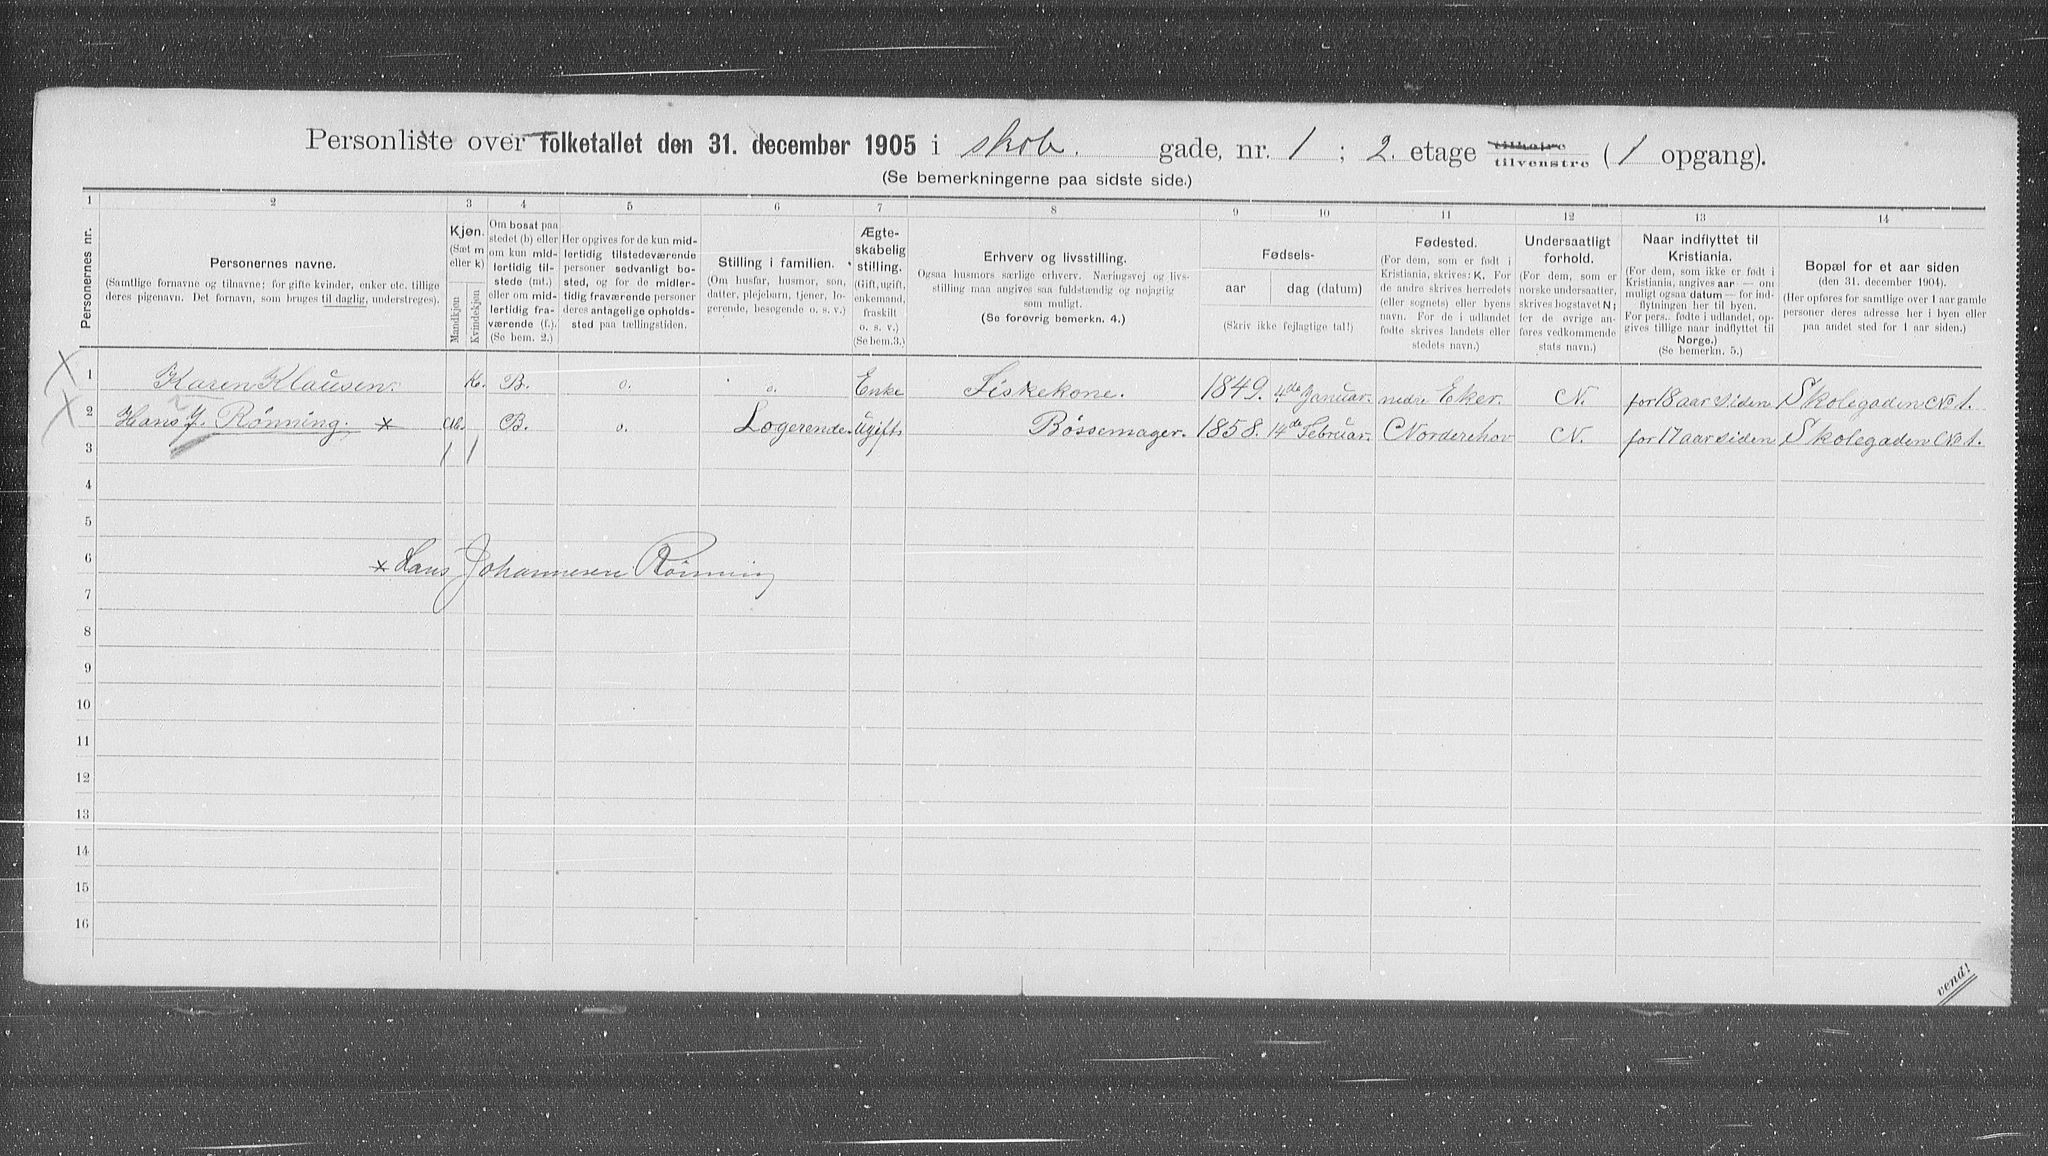 Personliste over folketallet den 31. december 1905 i Skole. gade, nr. 1; 2. etage tilhøire tilvenstre (1 opgang).
(Se bemerkningerne paa sidste side.)
1 2 3 4 5 6 7 8 9 10 11 12 13 14
Personernes nr.
Personernes navne.
(Samtlige fornavne og tilnavne; for gifte kvinder, enker etc. tillige
deres pigenavn. Det fornavn, som bruges til daglig, understreges).
Kjøn.
(Sæt m
eller k)
Mandkjøn
Kvindekjøn
Om bosat paa
stedet (b) eller
om kun mid-
lertidig til-
stede (mt.)
eller om mid-
lertidig fra-
værende (f.).
(Se bem. 2.)
Her opgives for de kun mid-
lertidig tilstedeværende
personer sedvanligt bo-
sted, og for de midler-
tidig fraværende personer
deres antagelige opholds-
sted paa tællingstiden.
Stilling i familien.
(Om husfar, husmor, søn,
datter, plejebarn, tjener, lo-
gerende, besøgende o. s. v.)
Ægte-
skabelig
stilling.
(Gift, ugift,
enkemand,
fraskilt
o. s. v.)
(Se bem. 3.)
Erhverv og livsstilling.
Ogsaa husmors særlige erhverv. Næringsvej og livs-
stilling maa angives saa fuldstændig og nøjagtig
som muligt.
(Se forøvrig bemerkn. 4.)
Fødsels-
aar dag (datum)
(Skriv ikke fejlagtige tal!)
Fødested.
(For dem, som er født i
Kristiania, skrives: K. For
de andre skrives herredets
(eller sognets) eller byens
navn. For de i udlandet
fødte skrives landets eller
stedets navn.)
Undersaatligt
forhold.
(For dem, som er
norske undersaatter,
skrives bogstavet N;
for de øvrige an-
føres vedkommende
stats navn.)
Naar indflyttet til
Kristiania.
(For dem, som ikke er født i
Kristiania, angives aar — om
muligt ogsaa datum — for ind-
flytningen her til byen.
For pers. fødte i udlandet, op-
gives tillige naar indflyttet til
Norge.)
(Se bemerkn. 5.)
Bopæl for et aar siden
(den 31. december 1904).
(Her opføres for samtlige over 1 aar gamle
personer deres adresse her i byen eller
paa andet sted for 1 aar siden.)
X 1 Karen Klausen. K. B. o. o. Enke Fiskekone. 1849. 4de Januar. nedre Eker. N. for 18 aar siden Skolegaden No 1.
X 2 Hans J. Rönning. × M. B. o. Logerende. Ugift Bössemager. 1858. 14de Februar. Norderhov N. for 17 aar siden Skolegaden No 1.
3 1 1
4
5
6 × Hans Johannesen Rönning
7
8
9
10
11
12
13
14
15
16
vend!